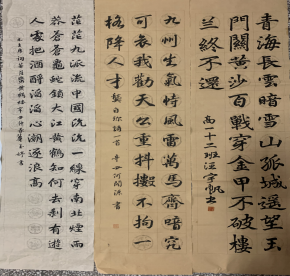 青海長雲暗雪山孤城遥望玉
門關黄沙百戰穿金甲不破樓
兰終不還
高一十二班汪宇帆书
九州生氣恃風雷萬馬齊喑究
可哀我勸天公重抖擻不拘一
格降人才
龔自珍詩一首
茫茫九派流中國沉沉一線穿南北煙雨
莽蒼蒼龜蛇鎖大江黄鶴知何去剩有遊
人處把酒酹滔滔心潮逐浪高
毛主席詞菩薩蠻黄鶴樓